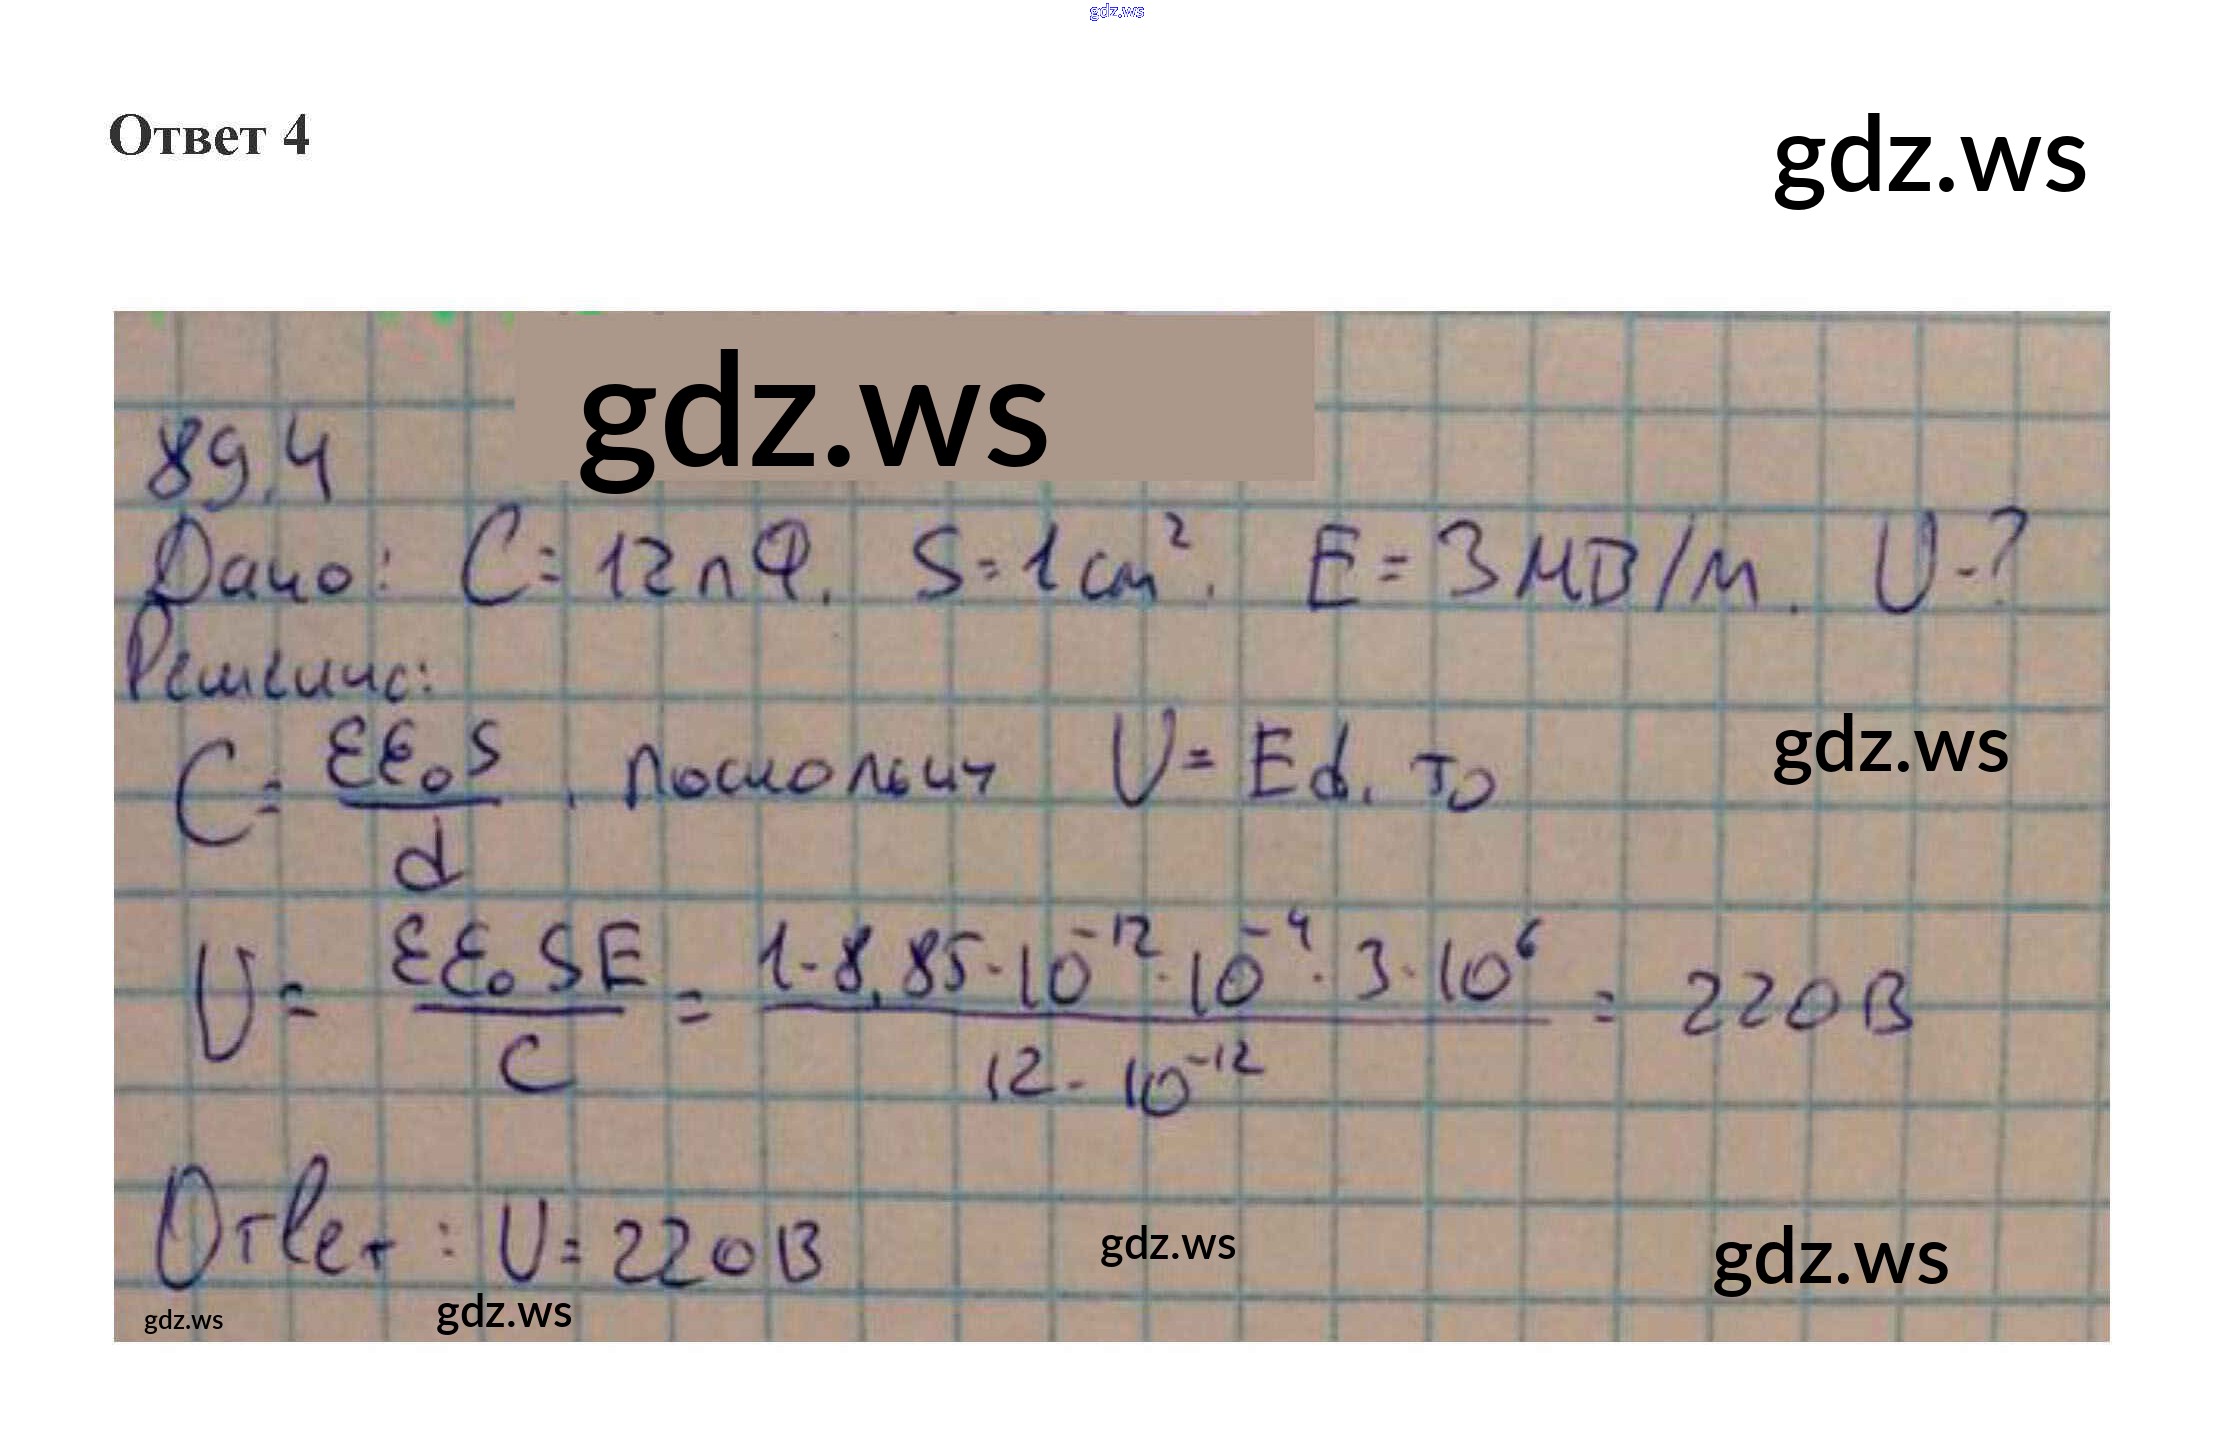 gdz.ws
Ответ 4
gdz.ws
gdz.ws
89.4
Дано: C = 12 пФ. S = 1 см². E = 3 МВ/м. U - ?
Решение:
C = εε₀S / d , поскольку U = Ed, то
gdz.ws
U = εε₀SE / C = 1·8,85·10⁻¹²·10⁻⁴·3·10⁶ / 12·10⁻¹² = 220 В
Ответ: U = 220 В
gdz.ws
gdz.ws
gdz.ws
gdz.ws